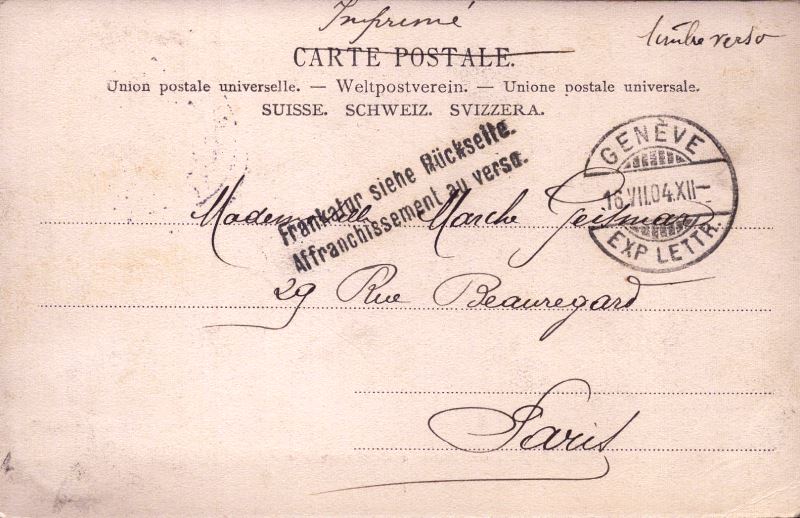 Imprimé
timbre verso
CARTE POSTALE.
Union postale universelle. — Weltpostverein. — Unione postale universale.
SUISSE. SCHWEIZ. SVIZZERA.
Frankatur siehe Rückseite.
Affranchissement au verso.
GENÈVE
16.VII.04.XII—
EXP. LETTR.
Mademoiselle Marche
29 Rue Beauregard
Paris